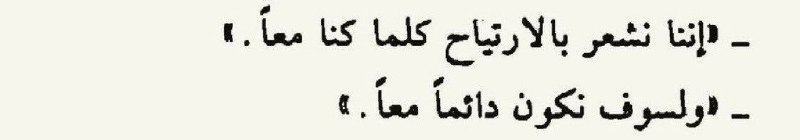 ـ «إننا نشعر بالارتياح كلما كنا معاً.»
ـ «ولسوف نكون دائماً معاً.»